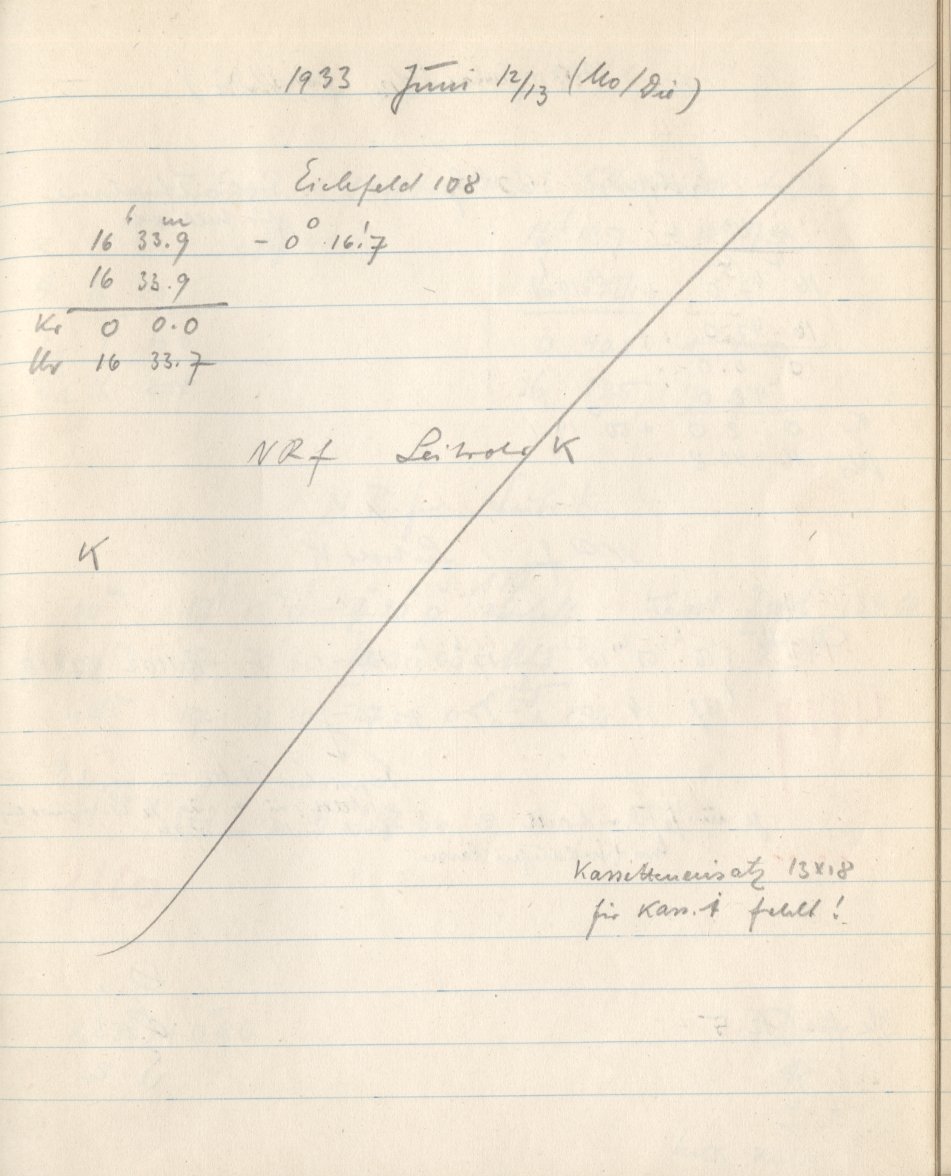 1933 Juni 12/13 (Mo/Die)
Eichfeld 108
h m
16 33.9 - 0° 16.'7
16 33.9
Kr 0 0.0
Uhr 16 33.7
NRf K
K
Kassetteneinsatz 13x18
für Kass. fehlt!